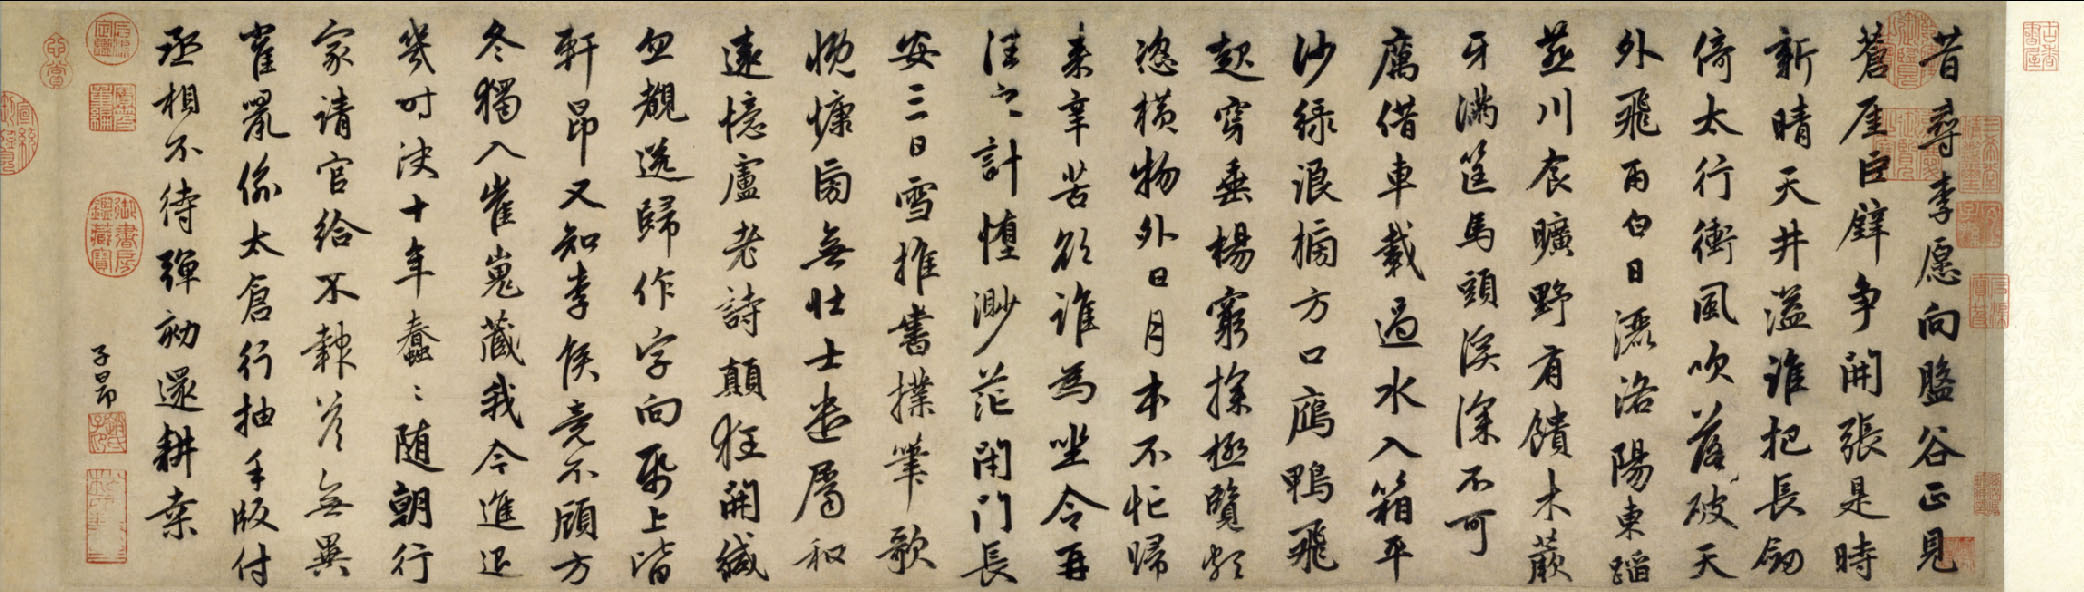 古香書屋
昔尋李愿向盤谷正見
蒼崖巨壁争開張是時
新晴天井溢誰把長劒
倚太行衝風吹落破天
外飛雨白日灑洛陽東蹈
燕川食曠野有饋木蕨
牙滿筐馬頭溪深不可
厲借車載過水入箱平
沙緑浪榜方口鴈鴨飛
起穿垂楊窮探極覽頗
恣橫物外日月本不忙歸
来辛苦欲誰為坐令再
往之計墮渺茫閉門長
安三日雪推書撲筆歌
慨慷旁無壯士遣屬和
遠憶盧老詩顛狂開緘
忽覩送歸作字向紙上皆
軒昂又知李侯竟不顧方
冬獨入崔嵬藏我今進退
幾时决十年蠢〻随朝行
家請官給不報答無異
雀鼠偷太倉行抽手版付
丞相不待彈劾還耕桒
子昂
御書房鑑藏寶